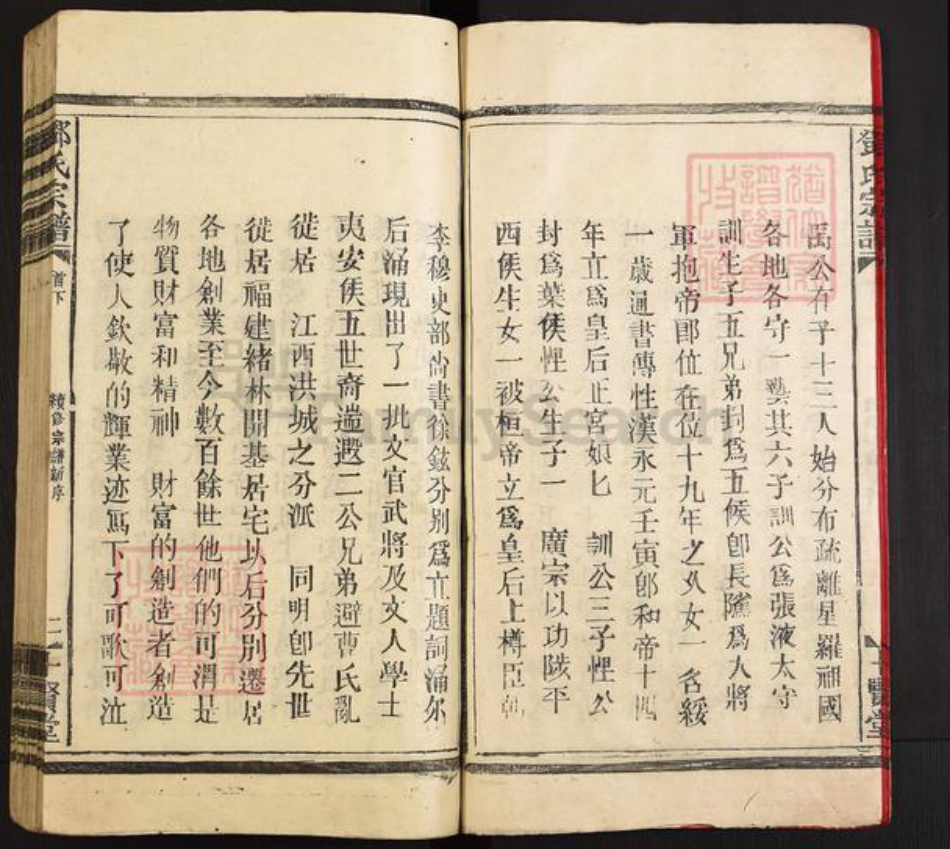 禹公有子十三人始分布疏離星羅祖國
各地各守一藝其六子訓公爲張液太守
訓生子五兄弟封爲五侯卽長隲爲大將
軍抱帝卽位在位十九年之久女一名綏
一歲通書傳性漢永元壬寅卽和帝十四
年立爲皇后正宮娘匕 訓公三子悝公
封爲葉侯悝公生子一 廣宗以功陟平
西侯生女一被桓帝立爲皇后上樽臣
李穆吏部尚書徐鉉分別爲立題詞涌尔
后涌現出了一批文官武將及文人學士
夷安侯五世裔遄遐二公兄弟避曹氏亂
徙居 江西洪城之分派 同明卽先世
徙居福建緒林開基居宅以后分別遷居
各地創業至今數百餘世他們的可渭是
物質財富和精神 財富的創造者創造
了使人欽敬的輝業迹寫下了可歌可泣
鄧氏宗譜
首下
續修宗譜新序
二
賢堂
鄧氏宗譜
賢堂
FamilySearch